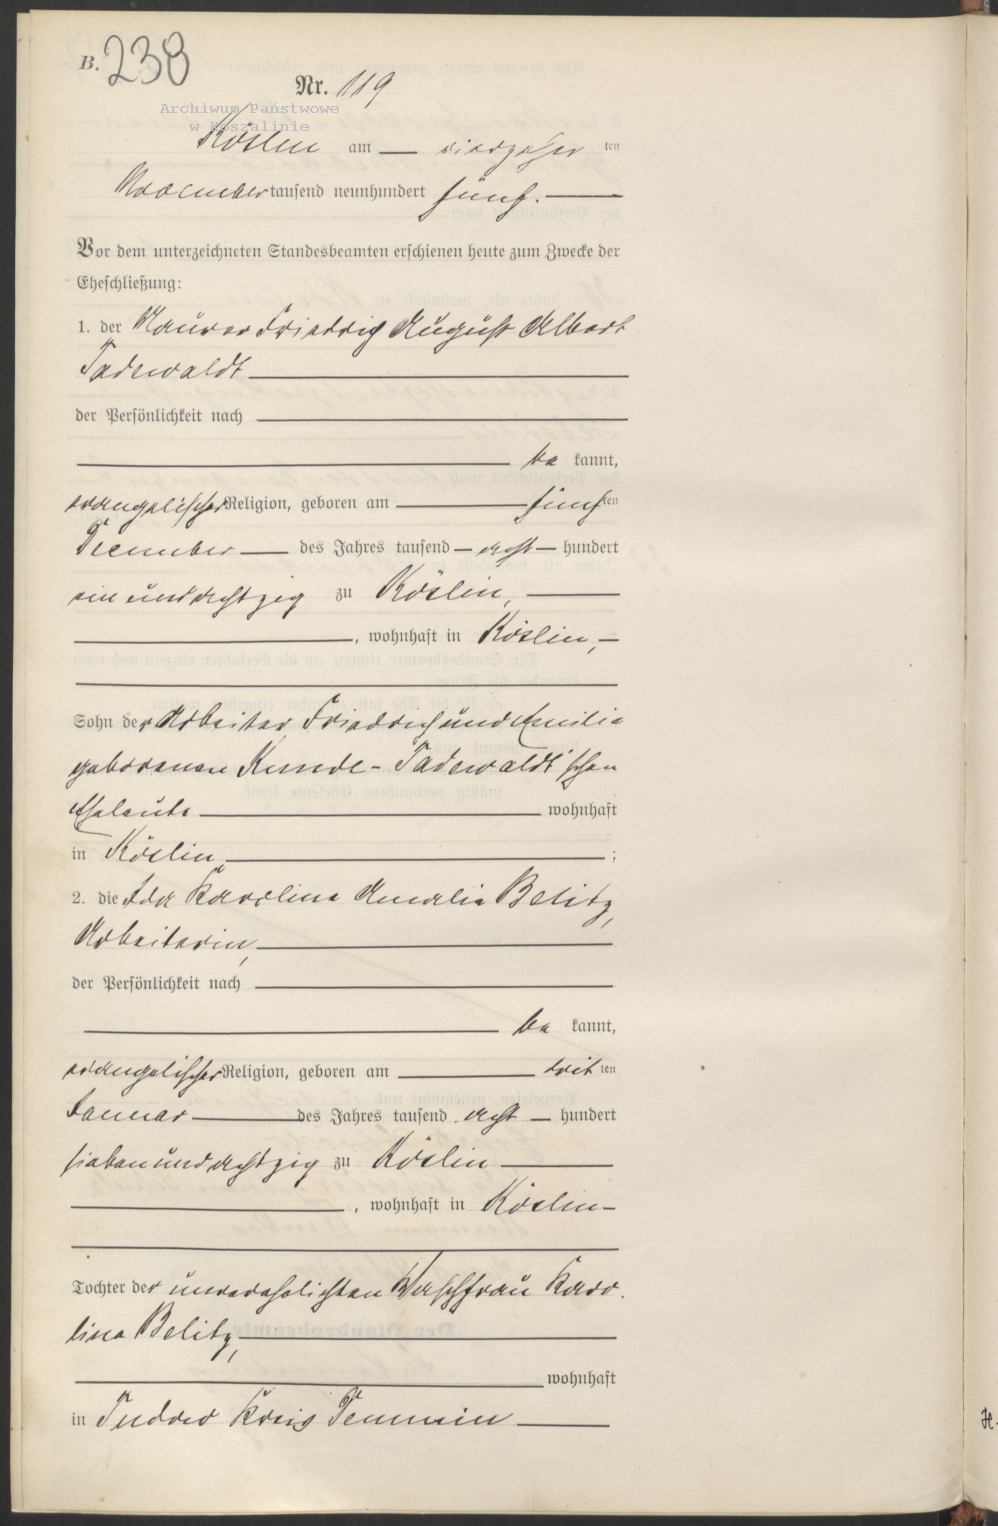 B. 238
Nr. 119
Archiwum Państwowe
w Koszalinie
Köslin am vierzehn ten
November tausend neunhundert fünf.
Vor dem unterzeichneten Standesbeamten erschienen heute zum Zwecke der
Eheschließung:
1. der Maurer Friedrich August Albert
Tadewaldt
der Persönlichkeit nach
be kannt,
evangelischer Religion, geboren am fünf ten
December des Jahres tausend acht hundert
ein und achtzig zu Köslin,
, wohnhaft in Köslin,
Sohn der Arbeiter Friedrich und Emilie
geborenen Kunde-Tadewaldt'schen
Eheleute wohnhaft
in Köslin ;
2. die Ida Karoline Amalie Belitz,
Arbeiterin,
der Persönlichkeit nach
be kannt,
evangelischer Religion, geboren am drit ten
Januar des Jahres tausend acht hundert
sieben und achtzig zu Köslin
, wohnhaft in Köslin
Tochter der unverehelichten Waschfrau Karo-
line Belitz,
wohnhaft
in Kreis Demmin